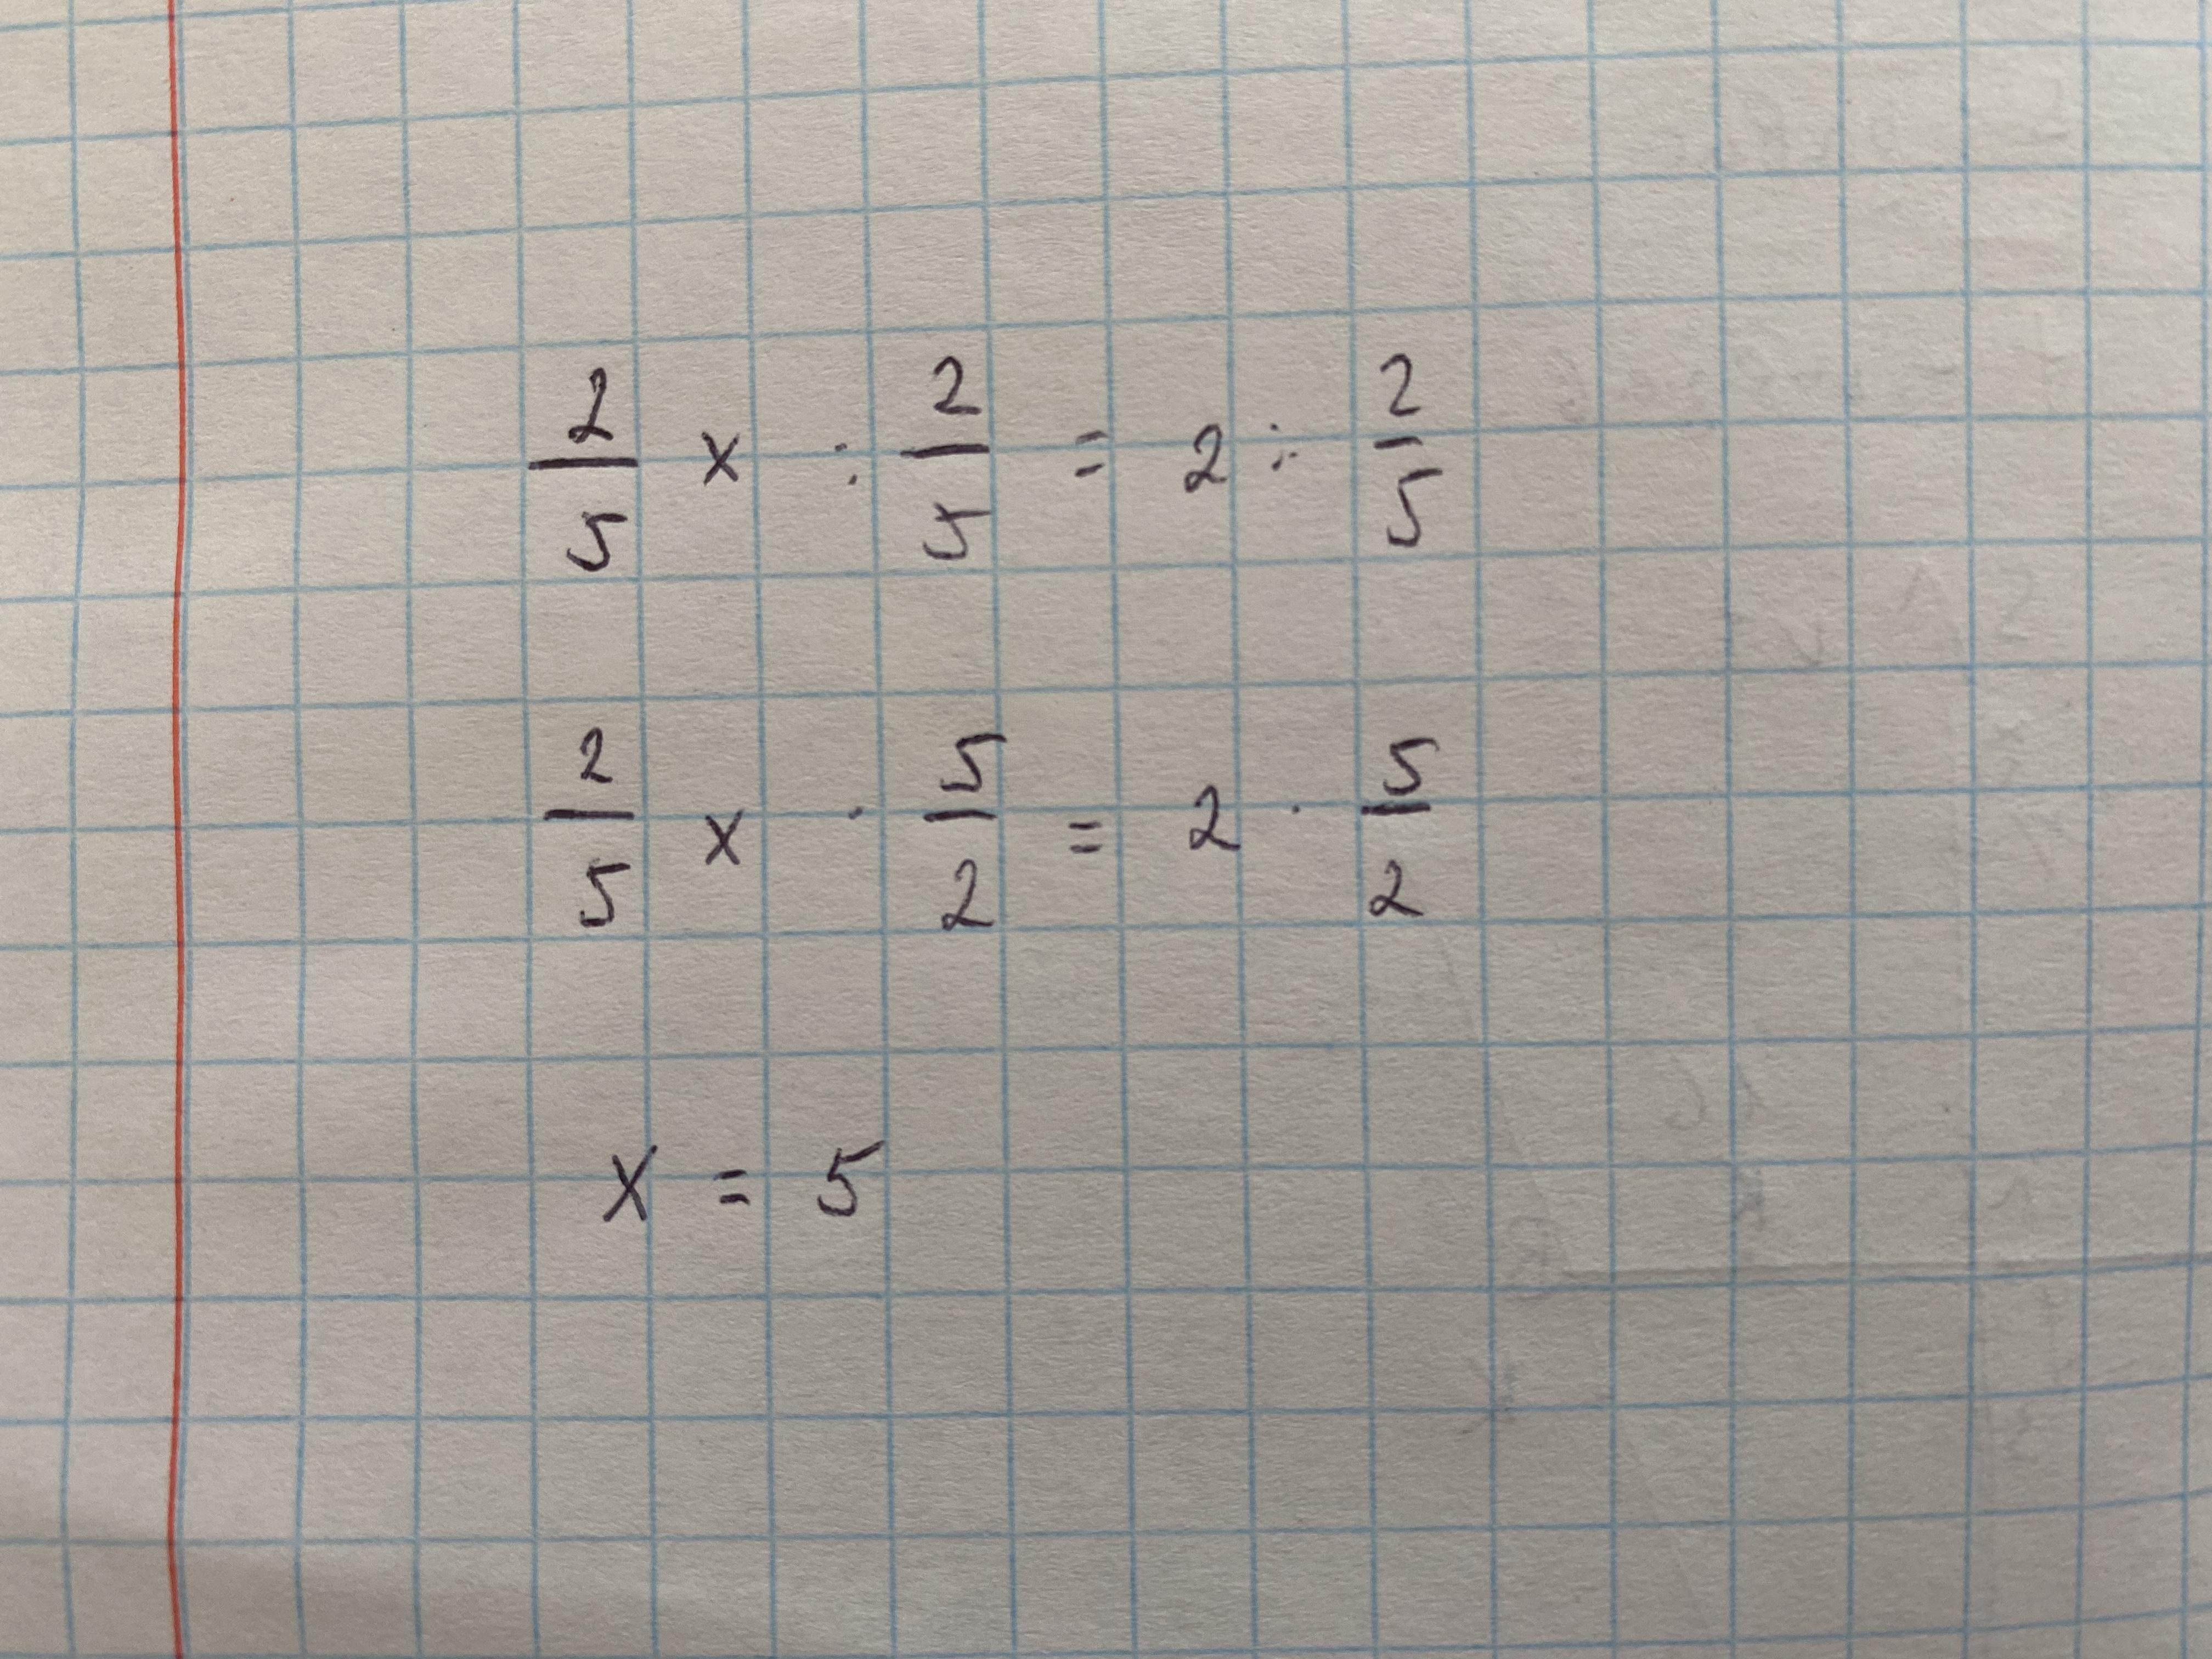 2/5 x : 2/5 = 2 : 2/5
2/5 x · 5/2 = 2 · 5/2
x = 5